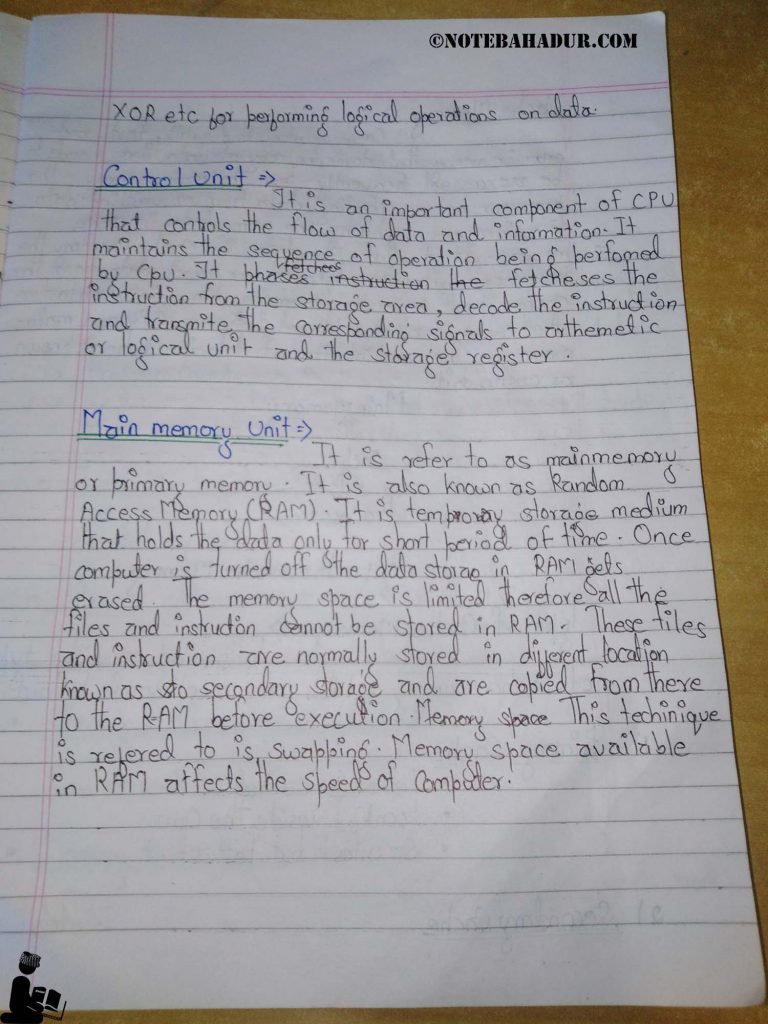 ©NOTEBAHADUR.COM
XOR etc for performing logical operations on data.
Control Unit ⇒
It is an important component of CPU
that controls the flow of data and information. It
maintains the sequence of operation being perfomed
fetchees
by Cpu. It phases instruction the fetcheses the
instruction from the storage area, decode the instruction
and transmite the corresponding signals to arthemetic
or logical unit and the storage register.
Main memory Unit ⇒
It is refer to as mainmemory
or primary memory. It is also known as Random
Access Memory (RAM). It is temprory storage medium
that holds the data only for short period of time. Once
computer is turned off the data storag in RAM gets
erased. The memory space is limited therefore all the
files and instruction cannot be stored in RAM. These files
and instruction are normally stored in different location
known as sto secondary storage and are copied from there
to the RAM before execution. Memory space This techinique
is refered to is swapping. Memory space available
in RAM affects the speed of Computer.